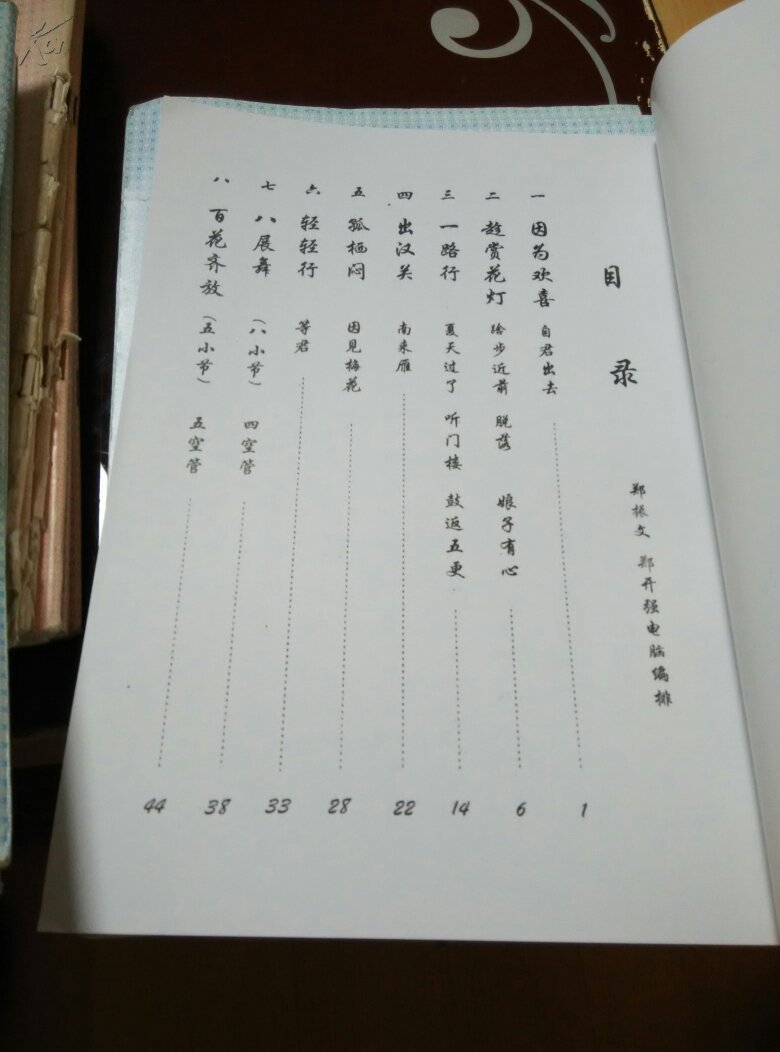 目录
郑振文 郑开强电脑编排
一 因为欢喜 自君出去 1
二 趁赏花灯 缓步近前 脱落 娘子有心 6
三 一路行 夏天过了 听门楼 鼓返五更 14
四 出汉关 南来雁 22
五 孤栖闷 因见梅花 28
六 轻轻行 等君 33
七 八展舞 (八小节) 四空管 38
八 百花齐放 (五小节) 五空管 44